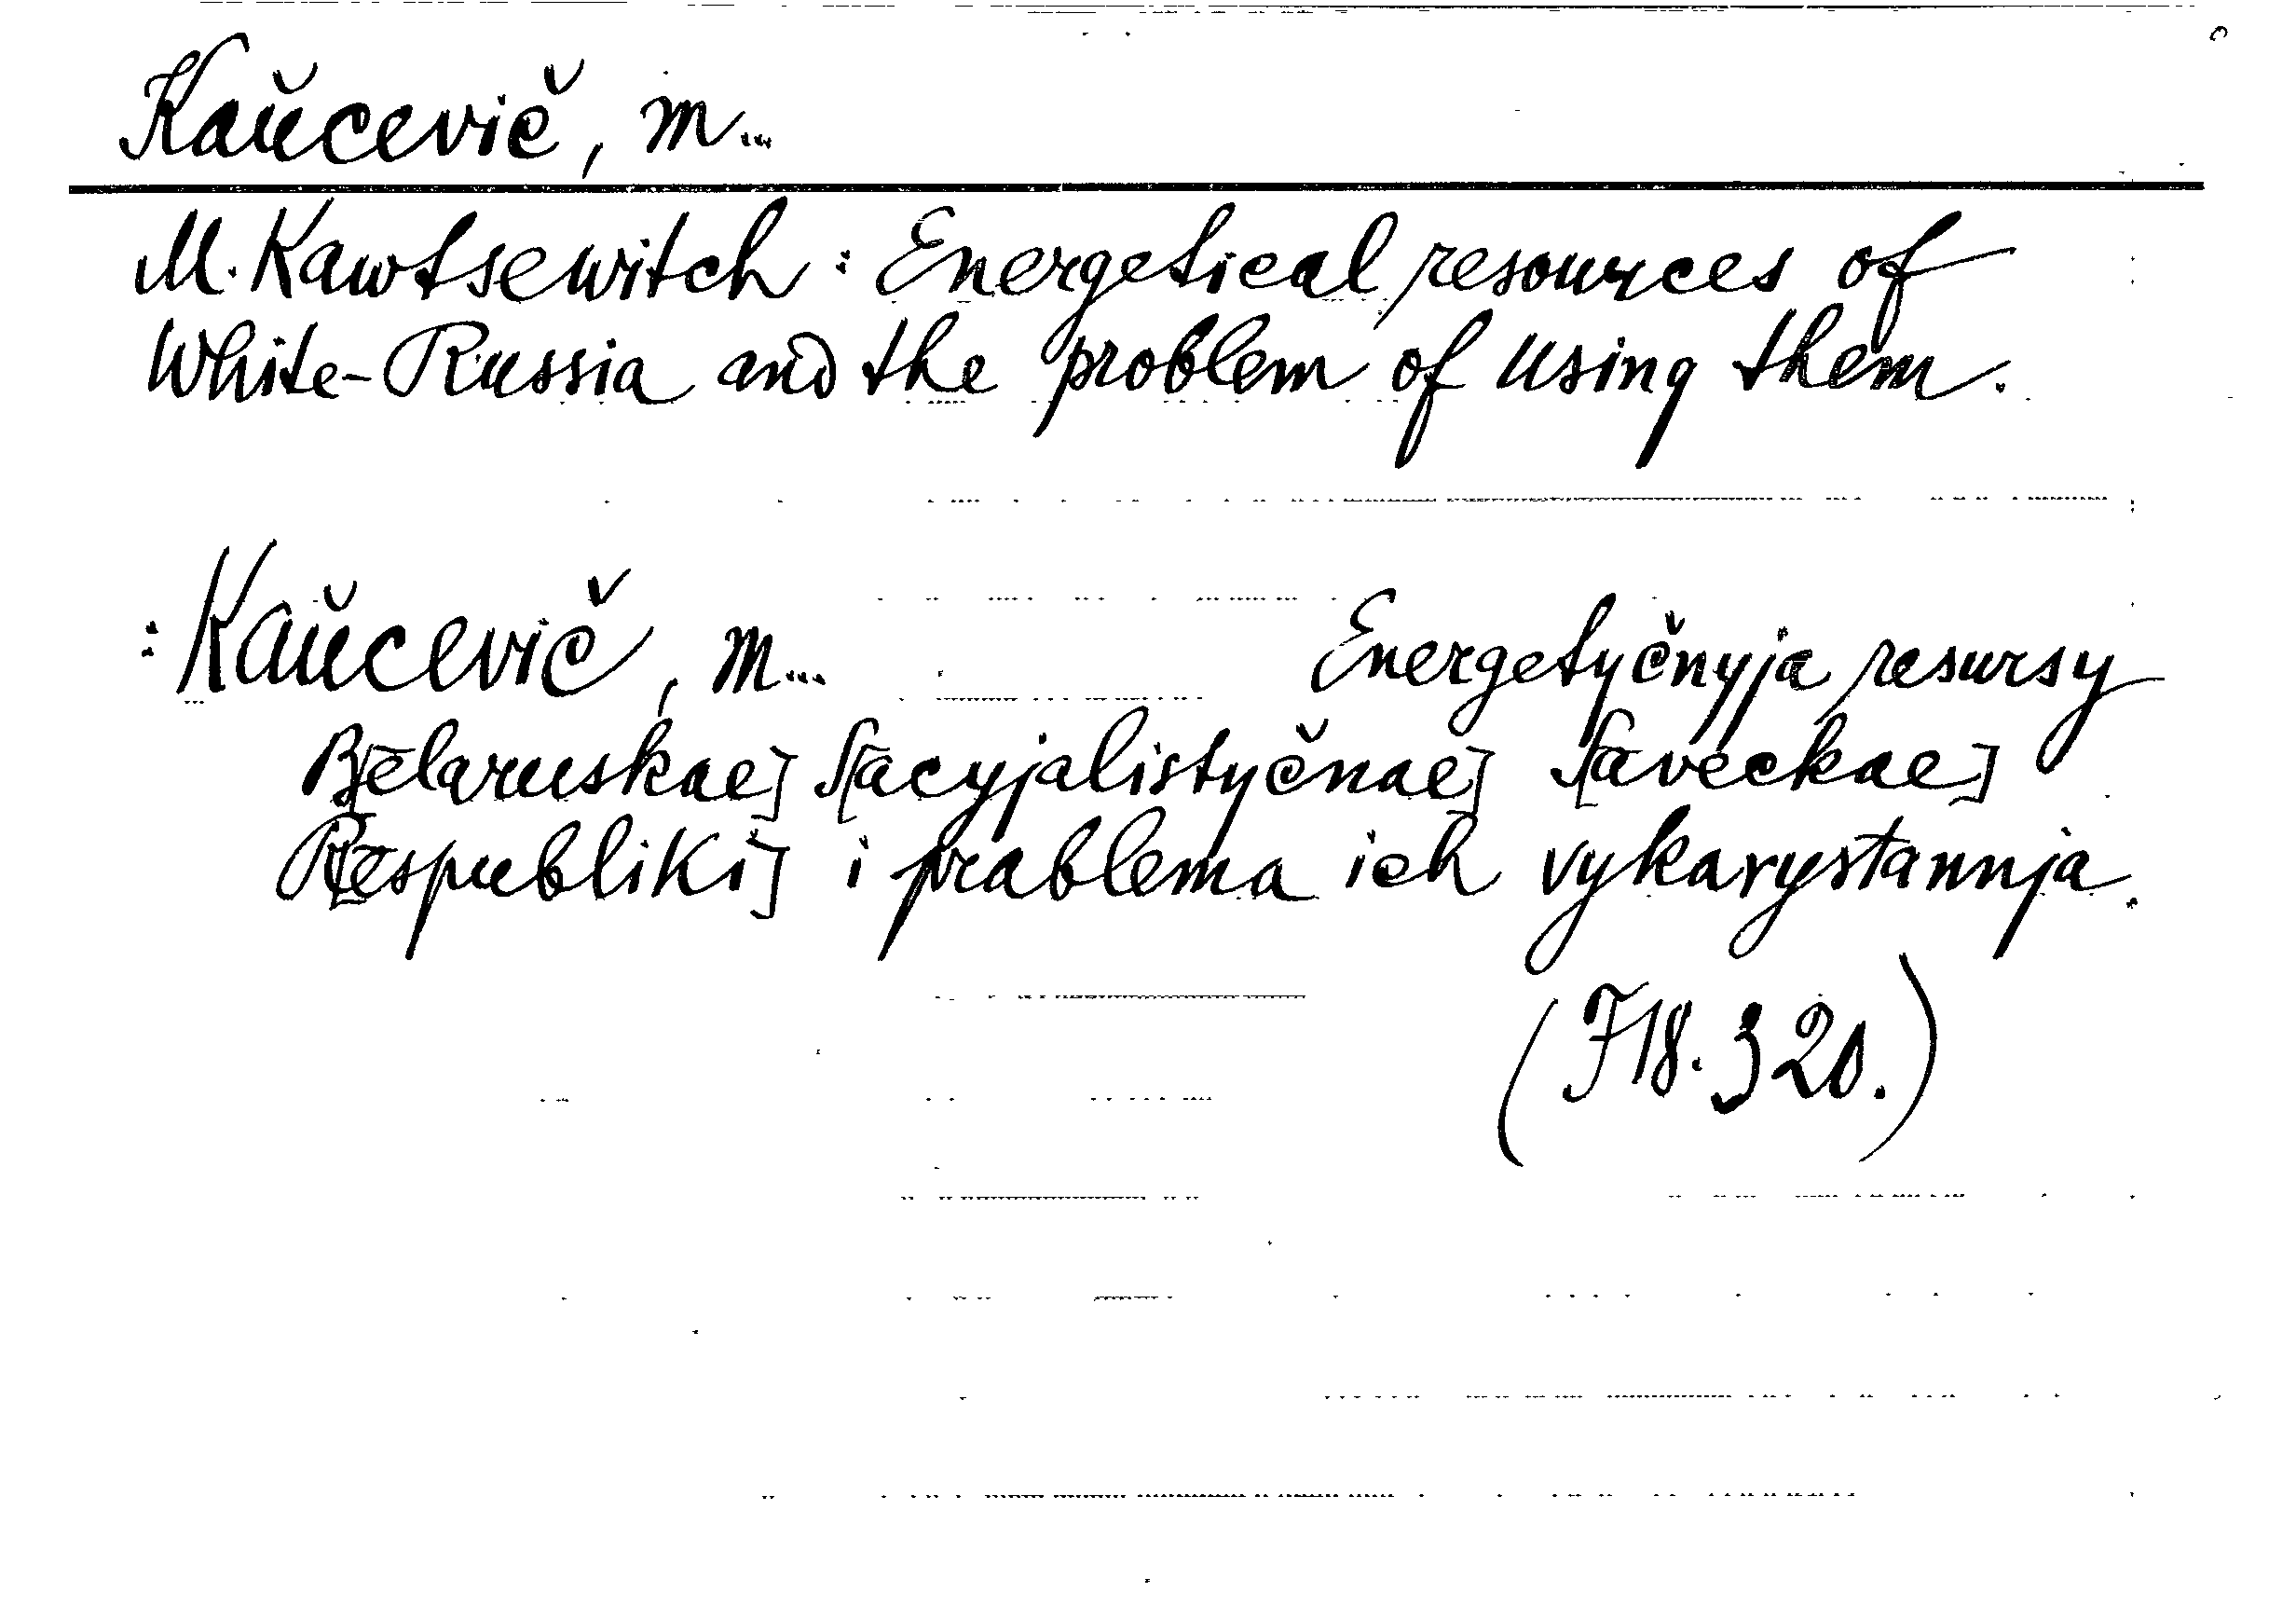 Kaŭcevič, M...
M. Kawtsewitch: Energetical resources of
White-Russia and the problem of using them.
: Kaŭcevič, M... Energetyčnyja resursy
B[elaruskae] S[acyjalistyčnae] S[aveckae]
R[espubliki] i prablema ich vykarystannja.
(F18.320.)